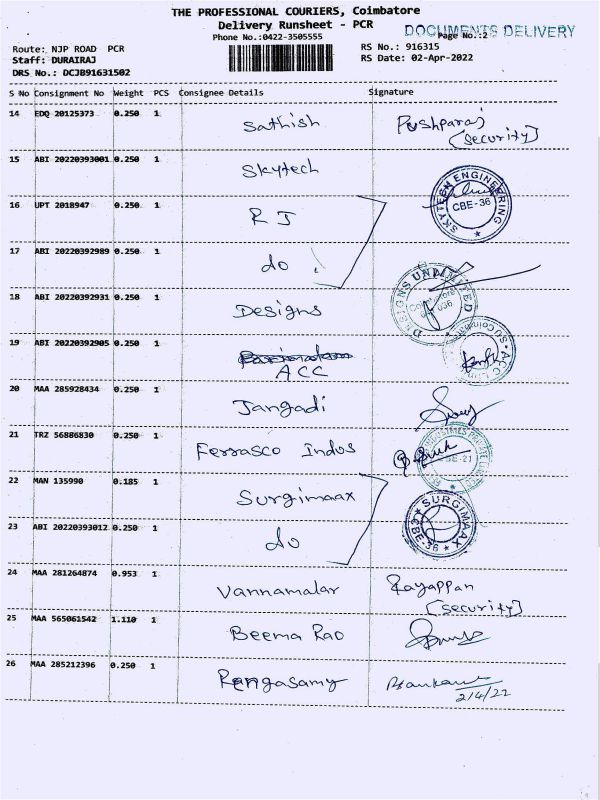 THE PROFESSIONAL COURIERS, Coimbatore
Delivery Runsheet - PCR
DOCUMENTS DELIVERY
Phone No.:0422-3505555
Page No.:2
Route: NJP ROAD PCR
RS No.: 916315
Staff: DURAIRAJ
RS Date: 02-Apr-2022
DRS No.: DCJB91631502
S No Consignment No Weight PCS Consignee Details Signature
14 EDQ 20125373 0.250 1 Sathish Pushparaj
(security)
15 ABI 20220393001 0.250 1 Skytech
SKYTECH ENGINEERING
CBE-36
16 UPT 2018947 0.250 1 RJ
17 ABI 20220392989 0.250 1 do
18 ABI 20220392931 0.250 1 Designs
DESIGNS UNLIMITED
19 ABI 20220392905 0.250 1
ACC
ACC
20 MAA 285928434 0.250 1 Jangadi
21 TRZ 56886830 0.250 1 Ferrasco Indus
22 MAN 135990 0.185 1 Surgimaax
SURGIMAAX
CBE-36
23 ABI 20220393012 0.250 1 do
24 MAA 281264874 0.953 1 Vannamalar Rayappan
(security)
25 MAA 565061542 1.110 1 Beema Rao
26 MAA 285212396 0.250 1 Rangasamy
2/4/22